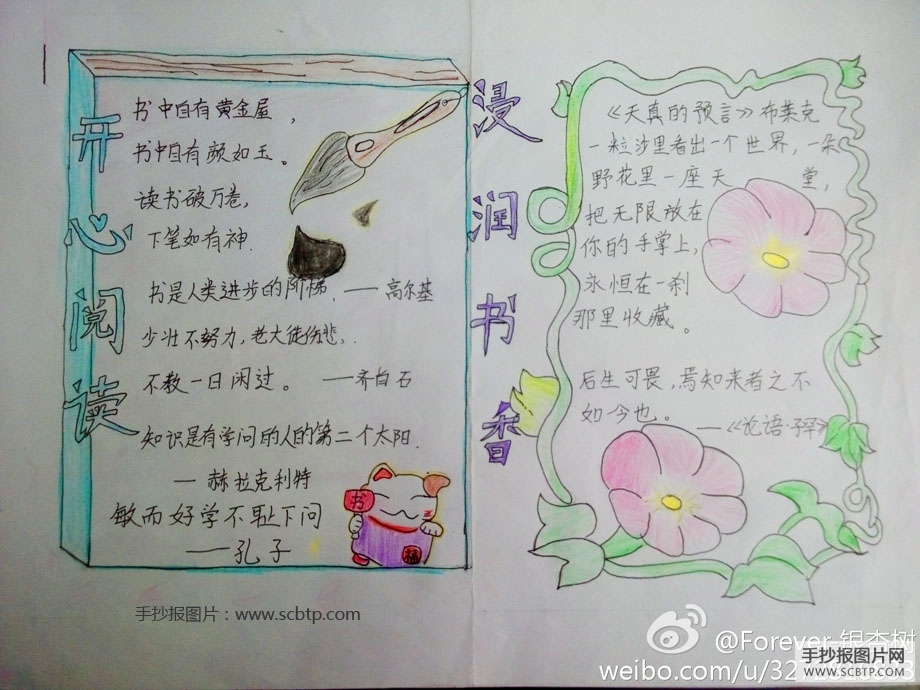 开心阅读
书中自有黄金屋，
书中自有颜如玉。
读书破万卷，
下笔如有神.
书是人类进步的阶梯.——高尔基
少壮不努力，老大徒伤悲，.
不教一日闲过。——齐白石
知识是有学问的人的第二个太阳.
——赫拉克利特
敏而好学不耻下问
——孔子
书
福
浸润书香
《天真的预言》布莱克
一粒沙里看出一个世界，一朵
野花里一座天堂，
把无限放在
你的手掌上，
永恒在一刹
那里收藏。
后生可畏，焉知来者之不
如今也。——《论语·子罕》
手抄报图片：www.scbtp.com
@Forever-银杏树
weibo.com/u/32
手抄报图片网
WWW.SCBTP.COM